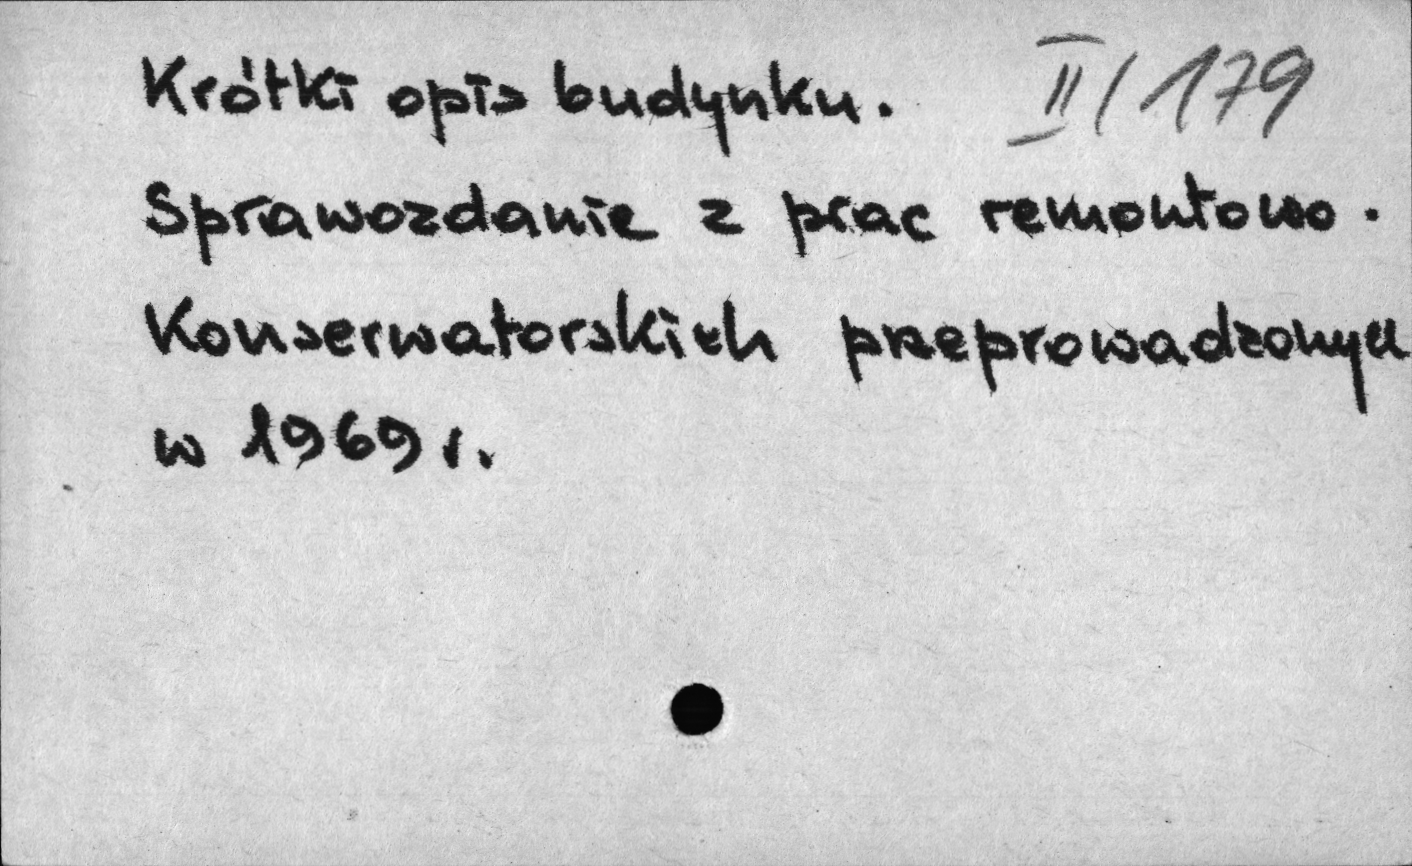 Krótki opis budynku. II/179
Sprawozdanie z prac remontowo.
Konserwatorskich przeprowadzonych
w 1969 r.